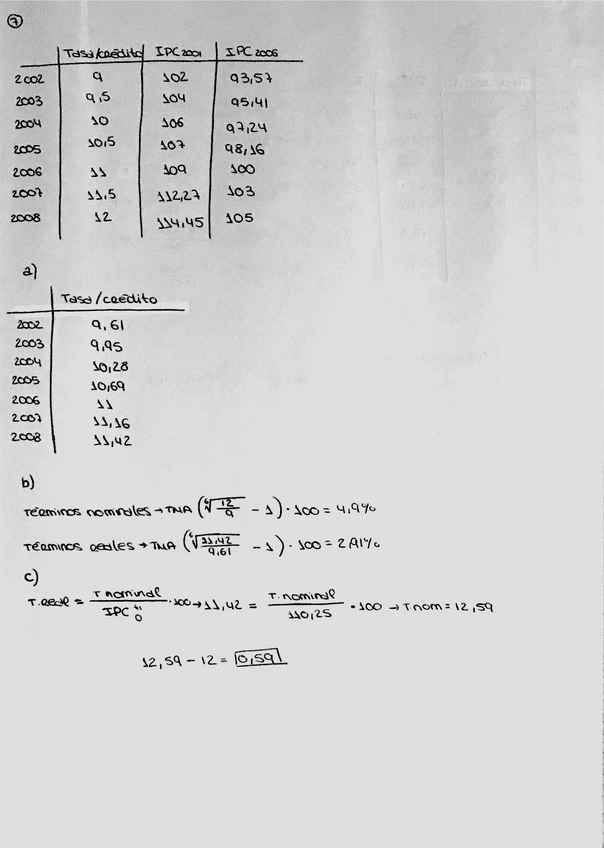 7
Tasa/crédito IPC 2001 IPC 2006
2002 9 102 93,57
2003 9,5 104 95,41
2004 10 106 97,24
2005 10,5 107 98,16
2006 11 109 100
2007 11,5 112,27 103
2008 12 114,45 105
a)
Tasa/crédito
2002 9,61
2003 9,95
2004 10,28
2005 10,69
2006 11
2007 11,16
2008 11,42
b)
Términos nominales → TMA (⁶√12/9 - 1) · 100 = 4,9%
Términos reales → TMA (⁶√11,42/9,61 - 1) · 100 = 2,91%
c)
T. real = T nominal / IPC 0 · 100 → 11,42 = T. nominal / 110,25 · 100 → T nom = 12,59
12,59 - 12 = 0,59